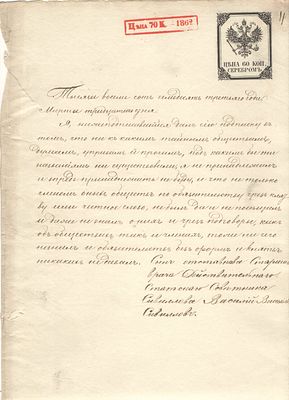 Цѣна 70 К. 1862
ЦѢНА 60 КОП.
СЕРЕБРОМЪ.
Тысяча восемь сотъ семьдесятъ третьяго года
Марта тридцатаго дня
Я, нижеподписавшійся, далъ сію подписку въ
томъ, что ни къ какимъ тайнымъ обществамъ,
думамъ, управамъ и прочимъ, подъ какимъ бы то
названіемъ ни существовали, я не принадлежалъ
и впредь принадлежать не буду, и что не только
членомъ оныхъ обществъ по обязательству чрезъ клят-
ву или честное слово, не былъ, да и не посѣщалъ
и даже не зналъ о нихъ и чрезъ подговоры, какъ
объ обществахъ, такъ и членахъ, тоже ничего не
и обязательствъ безъ формъ и клятвъ
никакихъ не давалъ. Сынъ отставнаго Старшаго
Врача Дѣйствительнаго
Статскаго Совѣтника
Сивиллова Василій
Сивилловъ.